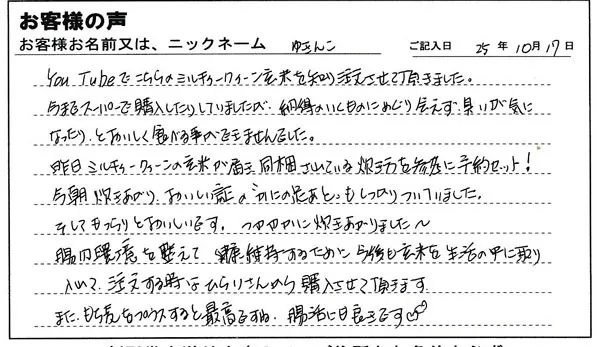 お客様の声
お客様お名前又は、ニックネーム ゆきんこ ご記入日 25年10月17日
You Tubeでこちらのミルキークィーン玄米を知り注文させて頂きました。
今までスーパーで購入したりしていましたが、納得のいくものにめぐり会えず、臭いが気に
なったり、とおいしく食べる事ができませんでした。
昨日ミルキークィーンの玄米が届き同梱されている炊き方を参考に予約セット!
今朝炊きあがり、おいしい証の“かにの足あと”もしっかりついていました。
そしてもっちりとおいしいです。つややかに炊きあがりました〜
腸内環境を整えて健康維持するために今後も玄米を生活の中に取り
入れて、注文する時はひらりさんから購入させて頂きます
また、もち麦をプラスすると最高ですね。腸活に日良きです